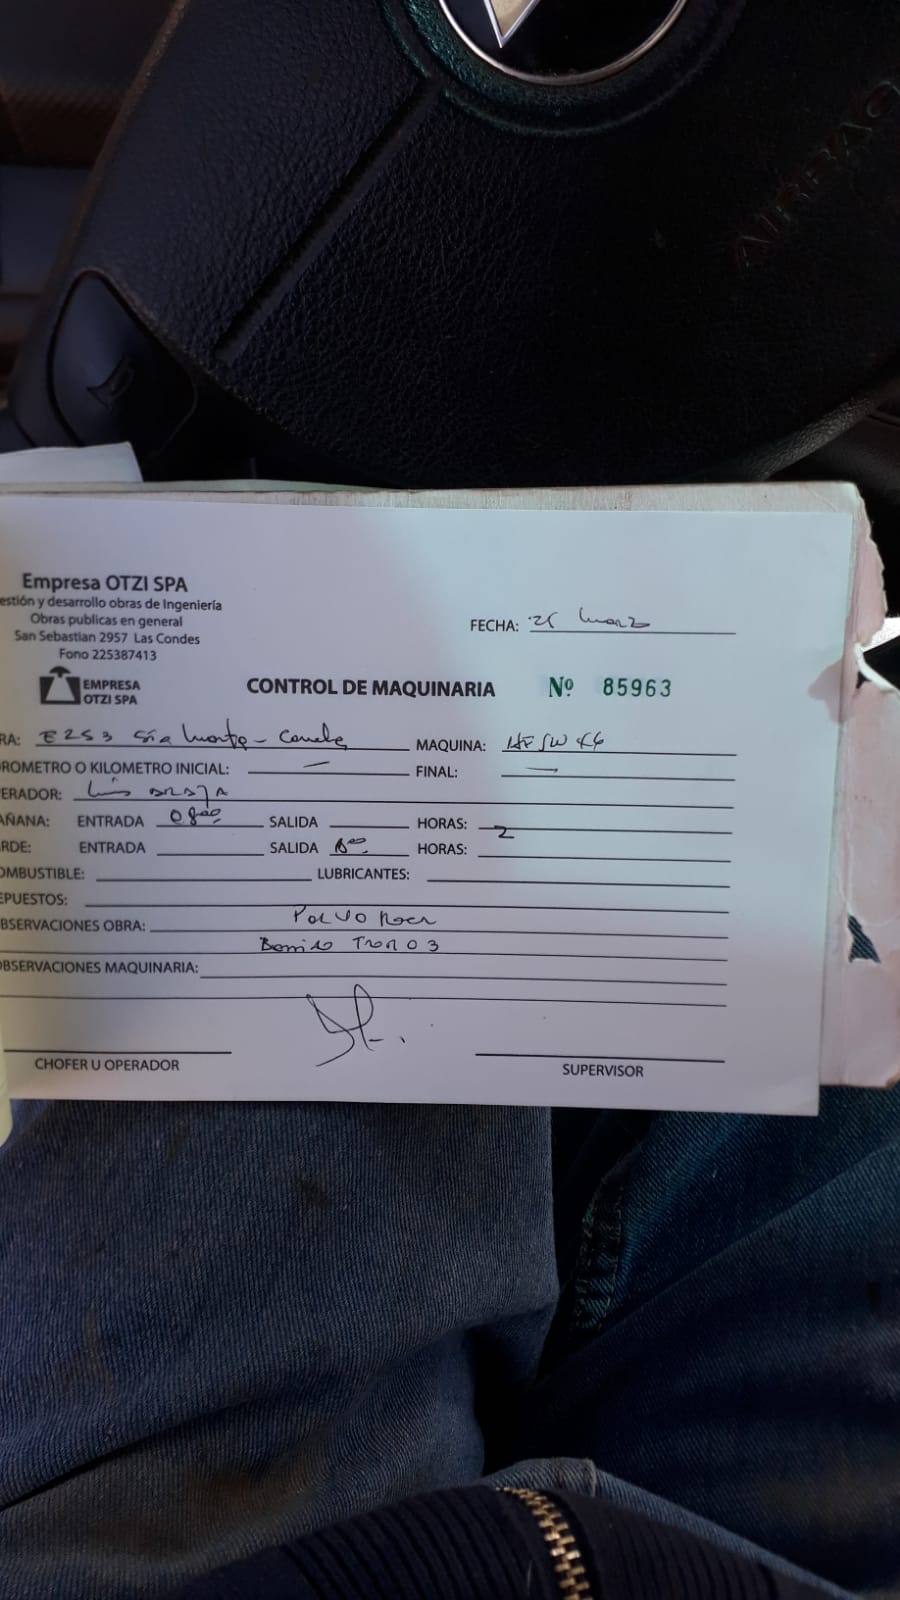 AIRBAG
Empresa OTZI SPA
estión y desarrollo obras de Ingeniería
Obras publicas en general
San Sebastian 2957 Las Condes
Fono 225387413
EMPRESA
OTZI SPA
FECHA: 25 Marzo
CONTROL DE MAQUINARIA Nº 85963
RA: E253 - Canela MAQUINA:
OROMETRO O KILOMETRO INICIAL: — FINAL: —
ERADOR: Luis
AÑANA: ENTRADA 08⁰⁰ SALIDA HORAS: 2
RDE: ENTRADA SALIDA HORAS:
OMBUSTIBLE: LUBRICANTES:
EPUESTOS:
BSERVACIONES OBRA:
Tramo 3
OBSERVACIONES MAQUINARIA:
CHOFER U OPERADOR SUPERVISOR